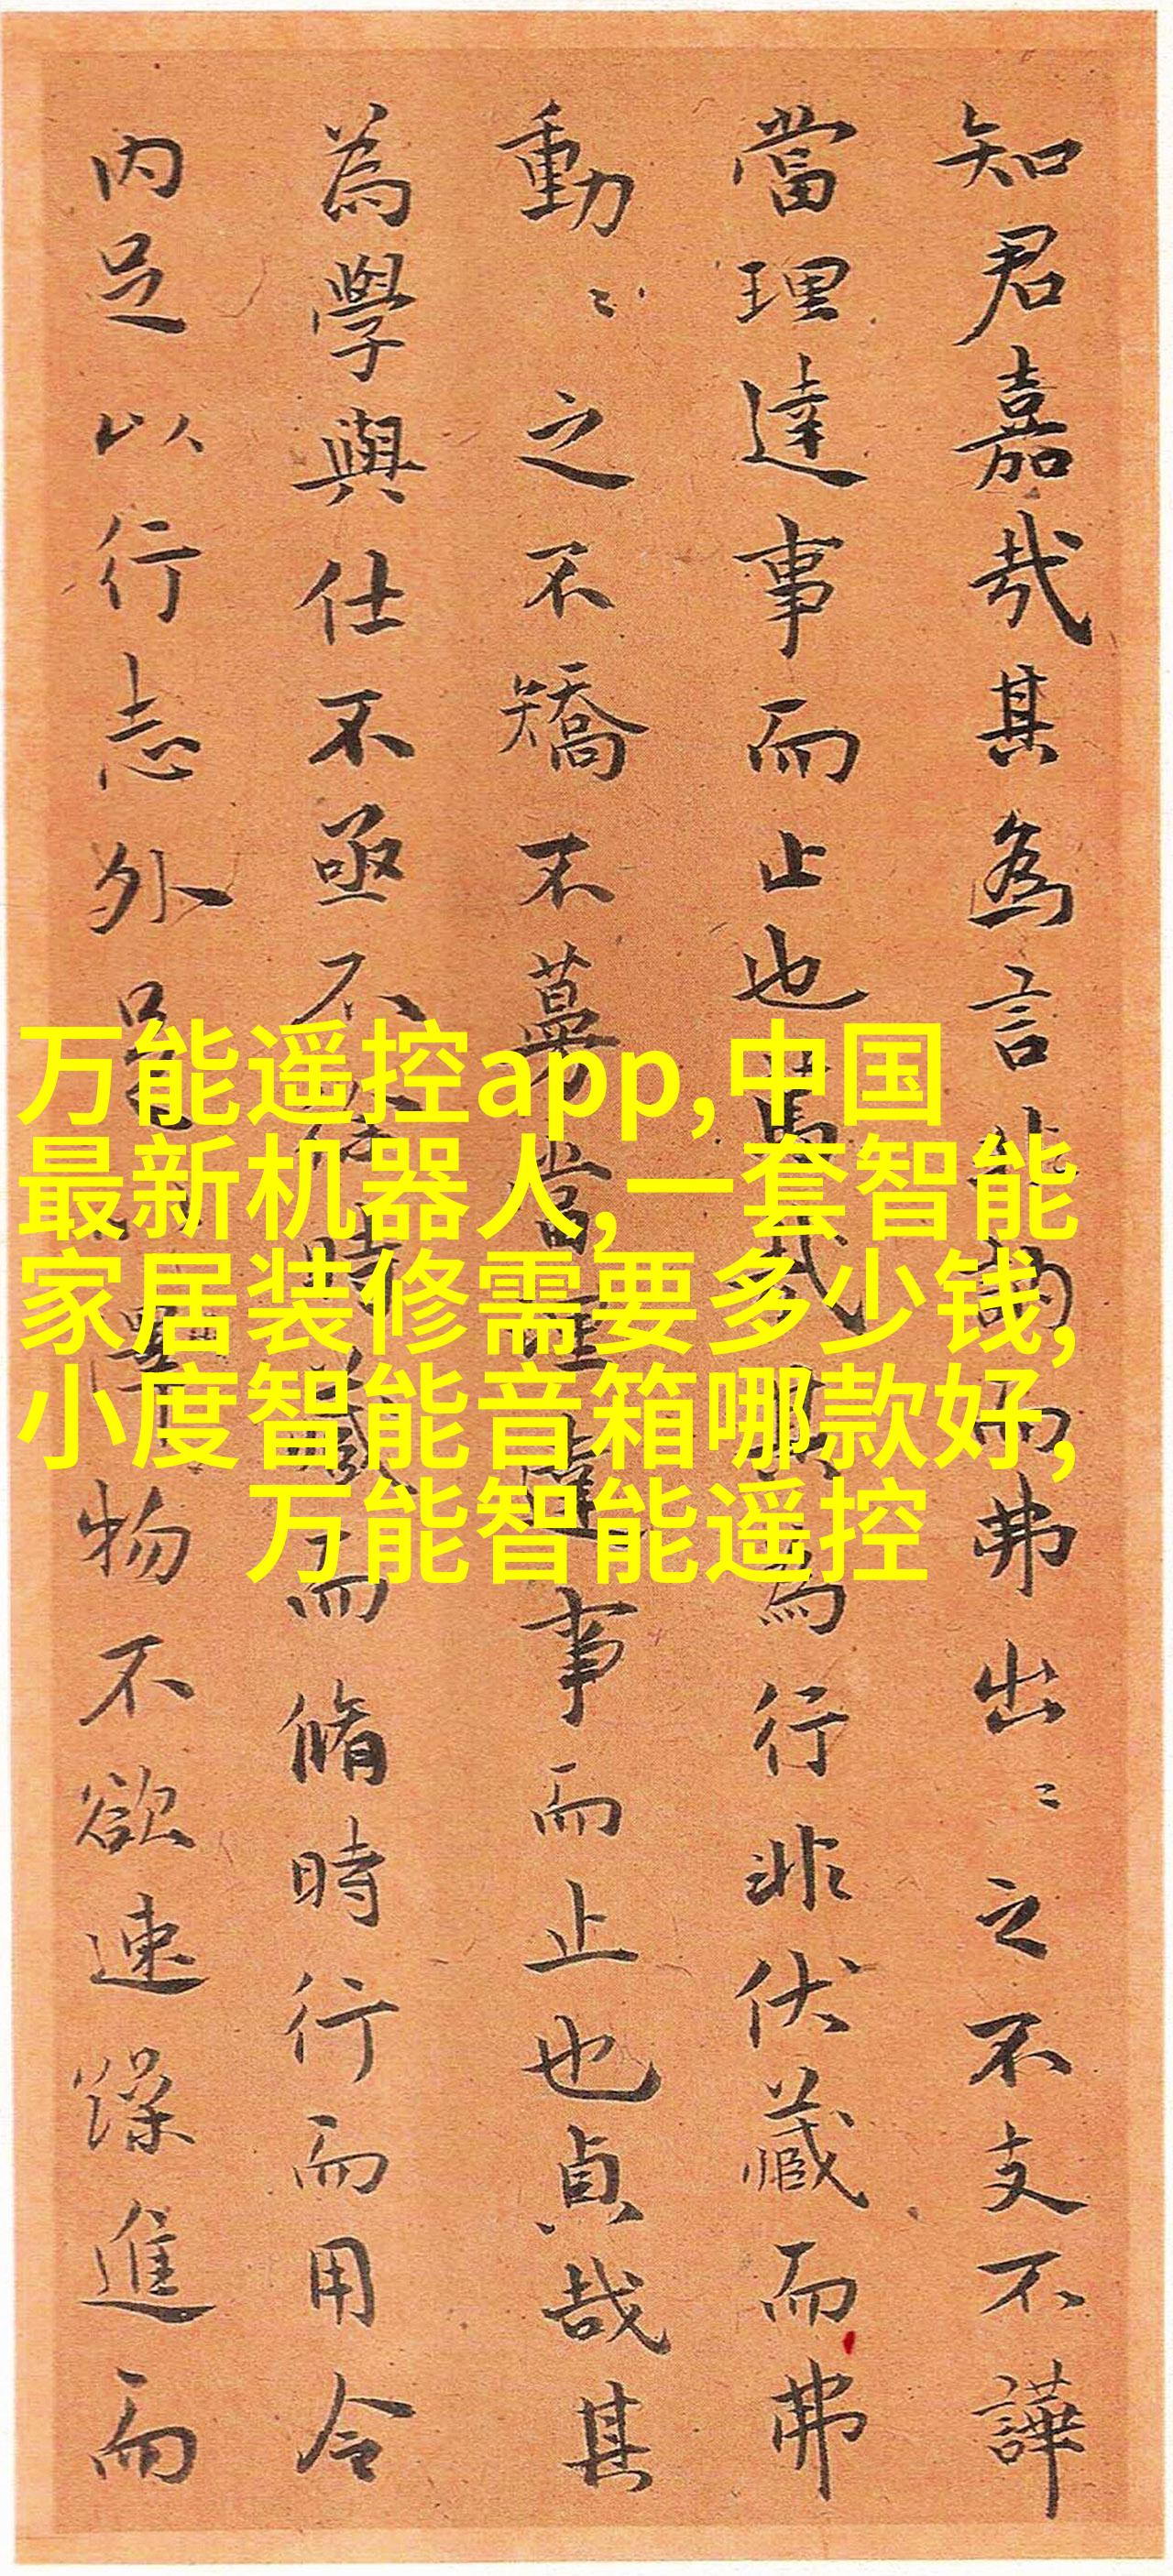 知君嘉哉其為言非訥而弗出々之不支不譁
當理達事而止也哉其為行非伏藏而弗
動々之不矯不當理達事而止也貞哉其
為學與仕不亟不徐時藏而脩時行而用令
内足以行志外足以澤物不欲速躁進而
万能遥控app,中国
最新机器人,一套智能
家居装修需要多少钱,
小度智能音箱哪款好,
万能智能遥控